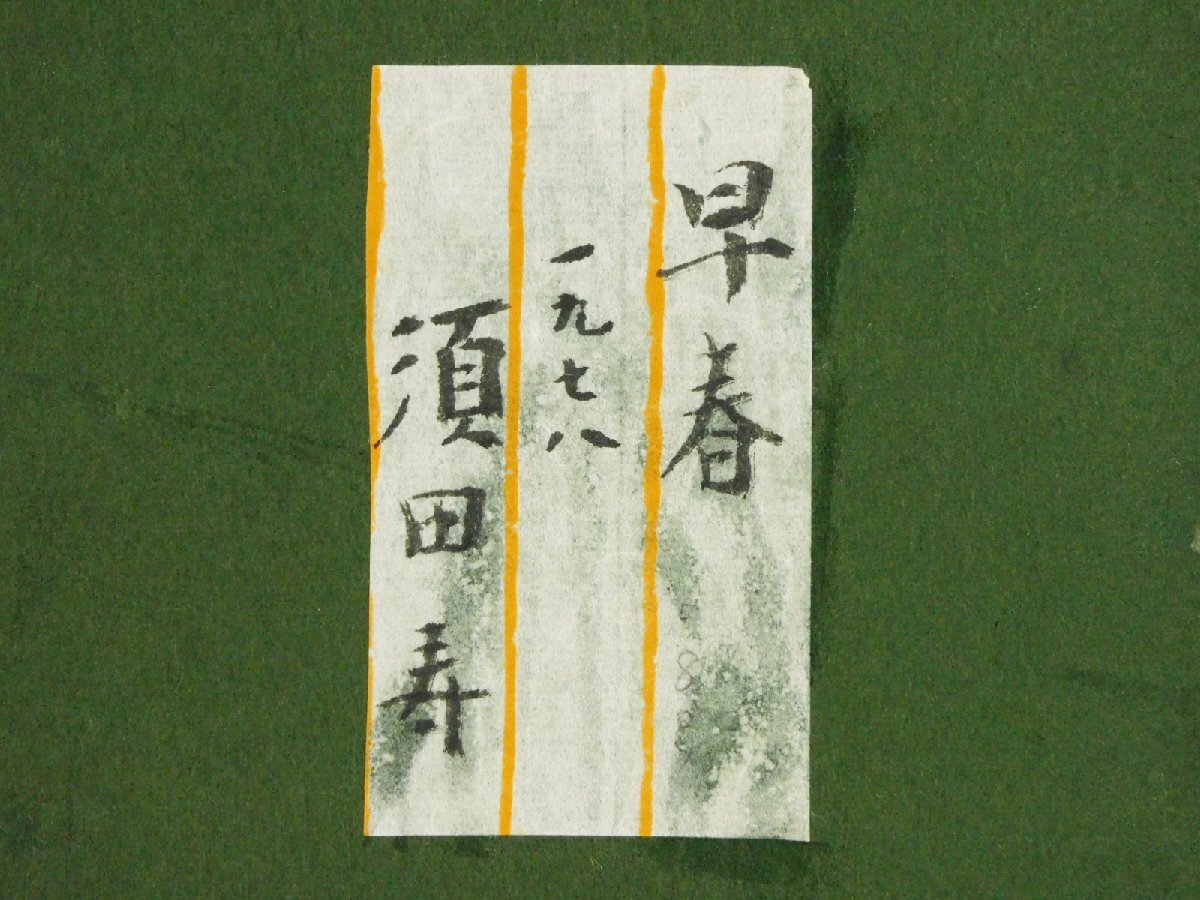 早春
一九七八
須田寿